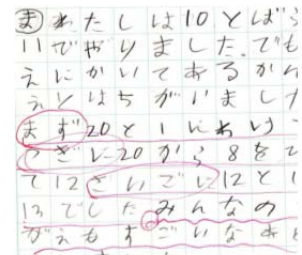 まわたしは10とばら
11でやりました。でも
えにかいてあるかん
えとはちがいました
まず20と1にわけ
つぎに20から8をひ
て12さいごに12と1
13でしたみんなの
がえもすごいなあと